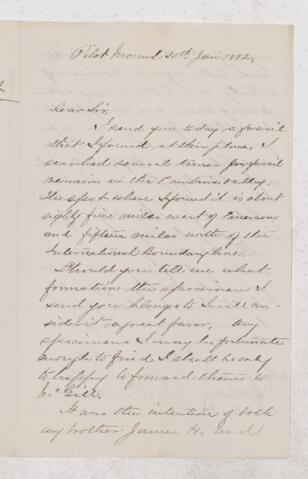 Pilot Mound 30th Jan 1882,
Dear Sir,
I send you today a fossil
that I found at this place. I
searched several times for fossil
remains in the Pembina valley
The spot where I found it is about
eighty five miles west of Emerson
and fifteen miles north of the
International Boundary line.
Should you tell me what
formation the specimen I
send you belongs to I will con
sider it a great favor. Any
specimens I may be fortunate
enough to find I shall be only
to happy to forward them to
McGill.
It was the intention of both
my brother James H. and